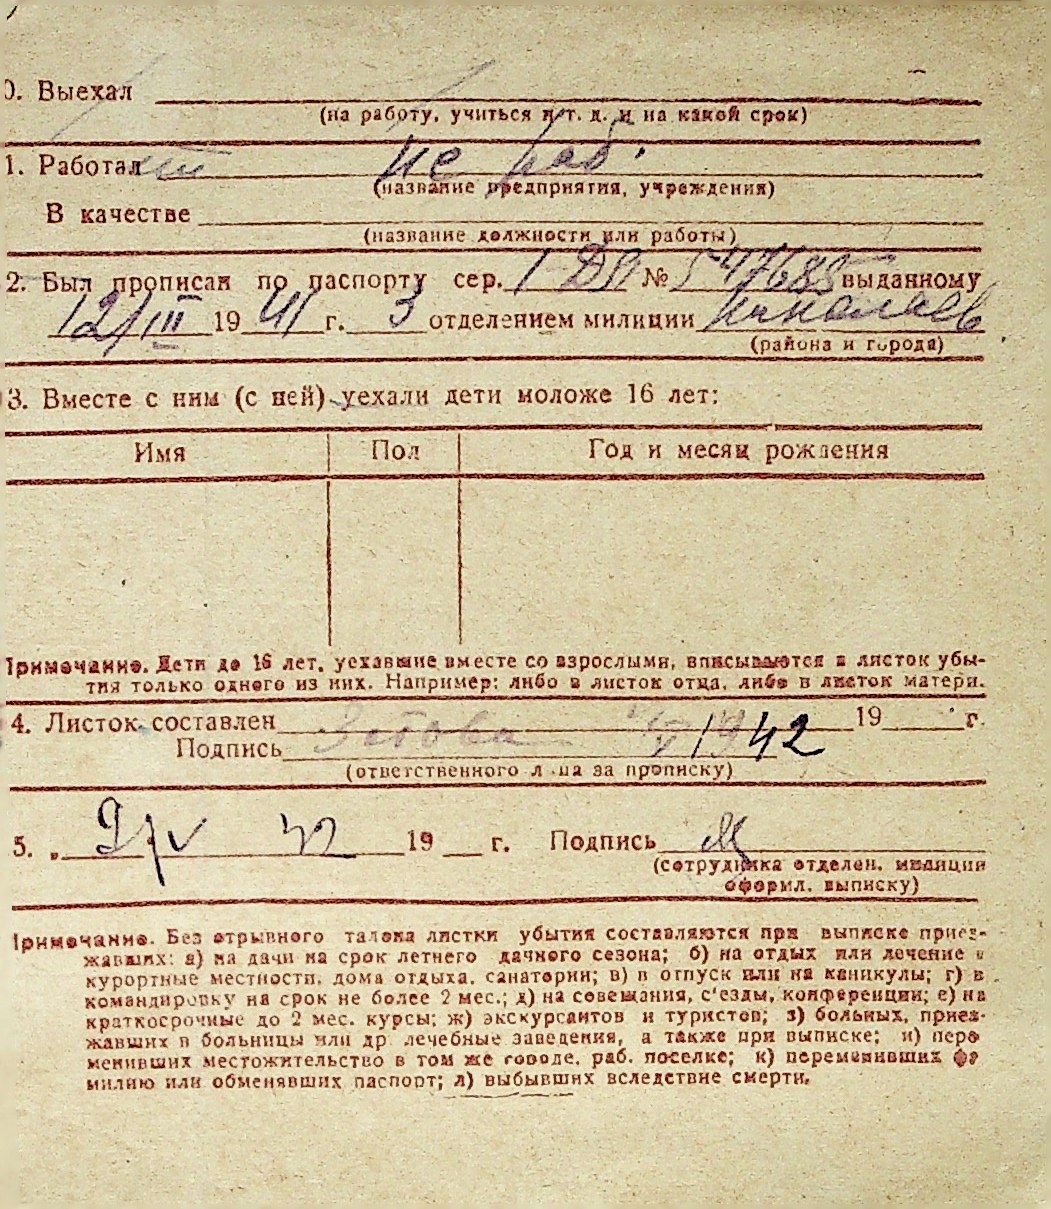 0. Выехал
(на работу, учиться и т. д. и на какой срок)
1. Работал не раб.
(название предприятия, учреждения)
В качестве
(название должности или работы)
2. Был прописан по паспорту сер. I ДЛ № 547685 выданному
12/III 1941 г. 3 отделением милиции
(района и города)
3. Вместе с ним (с ней) уехали дети моложе 16 лет:
Имя Пол Год и месяц рождения
Примечание. Дети до 16 лет, уехавшие вместе со взрослыми, вписываются в листок убы-
тия только одного из них. Например: либо в листок отца, либо в листок матери.
4. Листок составлен 19 г.
Подпись 42
(ответственного лица за прописку)
5. „ 9/V 42 19 г. Подпись
(сотрудника отделен. милиции
оформл. выписку)
Примечание. Без отрывного талона листки убытия составляются при выписке приез-
жавших: а) на дачи на срок летнего дачного сезона; б) на отдых или лечение в
курортные местности, дома отдыха, санатории; в) в отпуск или на каникулы; г) в
командировку на срок не более 2 мес.; д) на совещания, с'езды, конференции; е) на
краткосрочные до 2 мес. курсы; ж) экскурсантов и туристов; з) больных, приез-
жавших в больницы или др. лечебные заведения, а также при выписке; и) пере
менивших местожительство в том же городе, раб. поселке; к) переменивших фа
милию или обменявших паспорт; л) выбывших вследствие смерти.